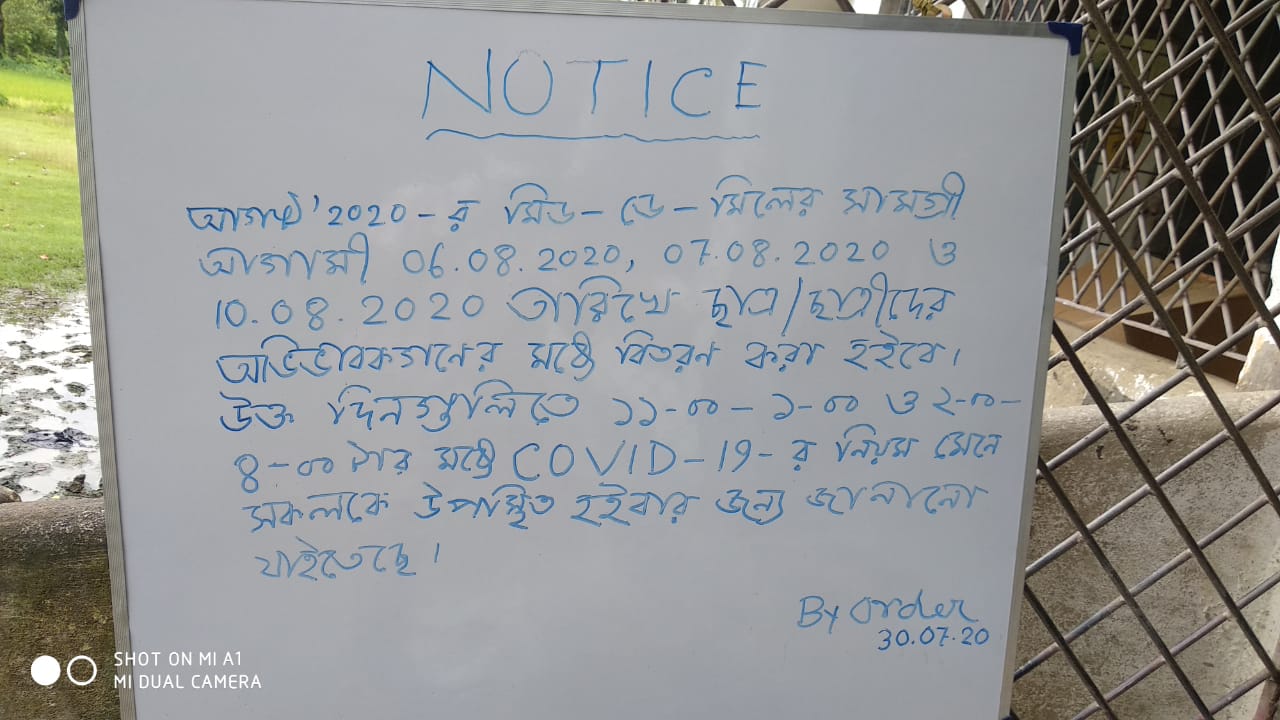 NOTICE
আগষ্ট'2020-র মিড-ডে-মিলের সামগ্রী
আগামী 06.08.2020, 07.08.2020 ও
10.08.2020 তারিখে ছাত্র/ছাত্রীদের
অভিভাবকগনের মধ্যে বিতরন করা হইবে।
উক্ত দিনগুলিতে ১১-০০-১-০০ ও ২-০০-
৪-০০ টার মধ্যে COVID-19-র নিয়ম মেনে
সকলকে উপস্থিত হইবার জন্য জানানো
যাইতেছে।
By order
30.07.20
SHOT ON MI A1
MI DUAL CAMERA